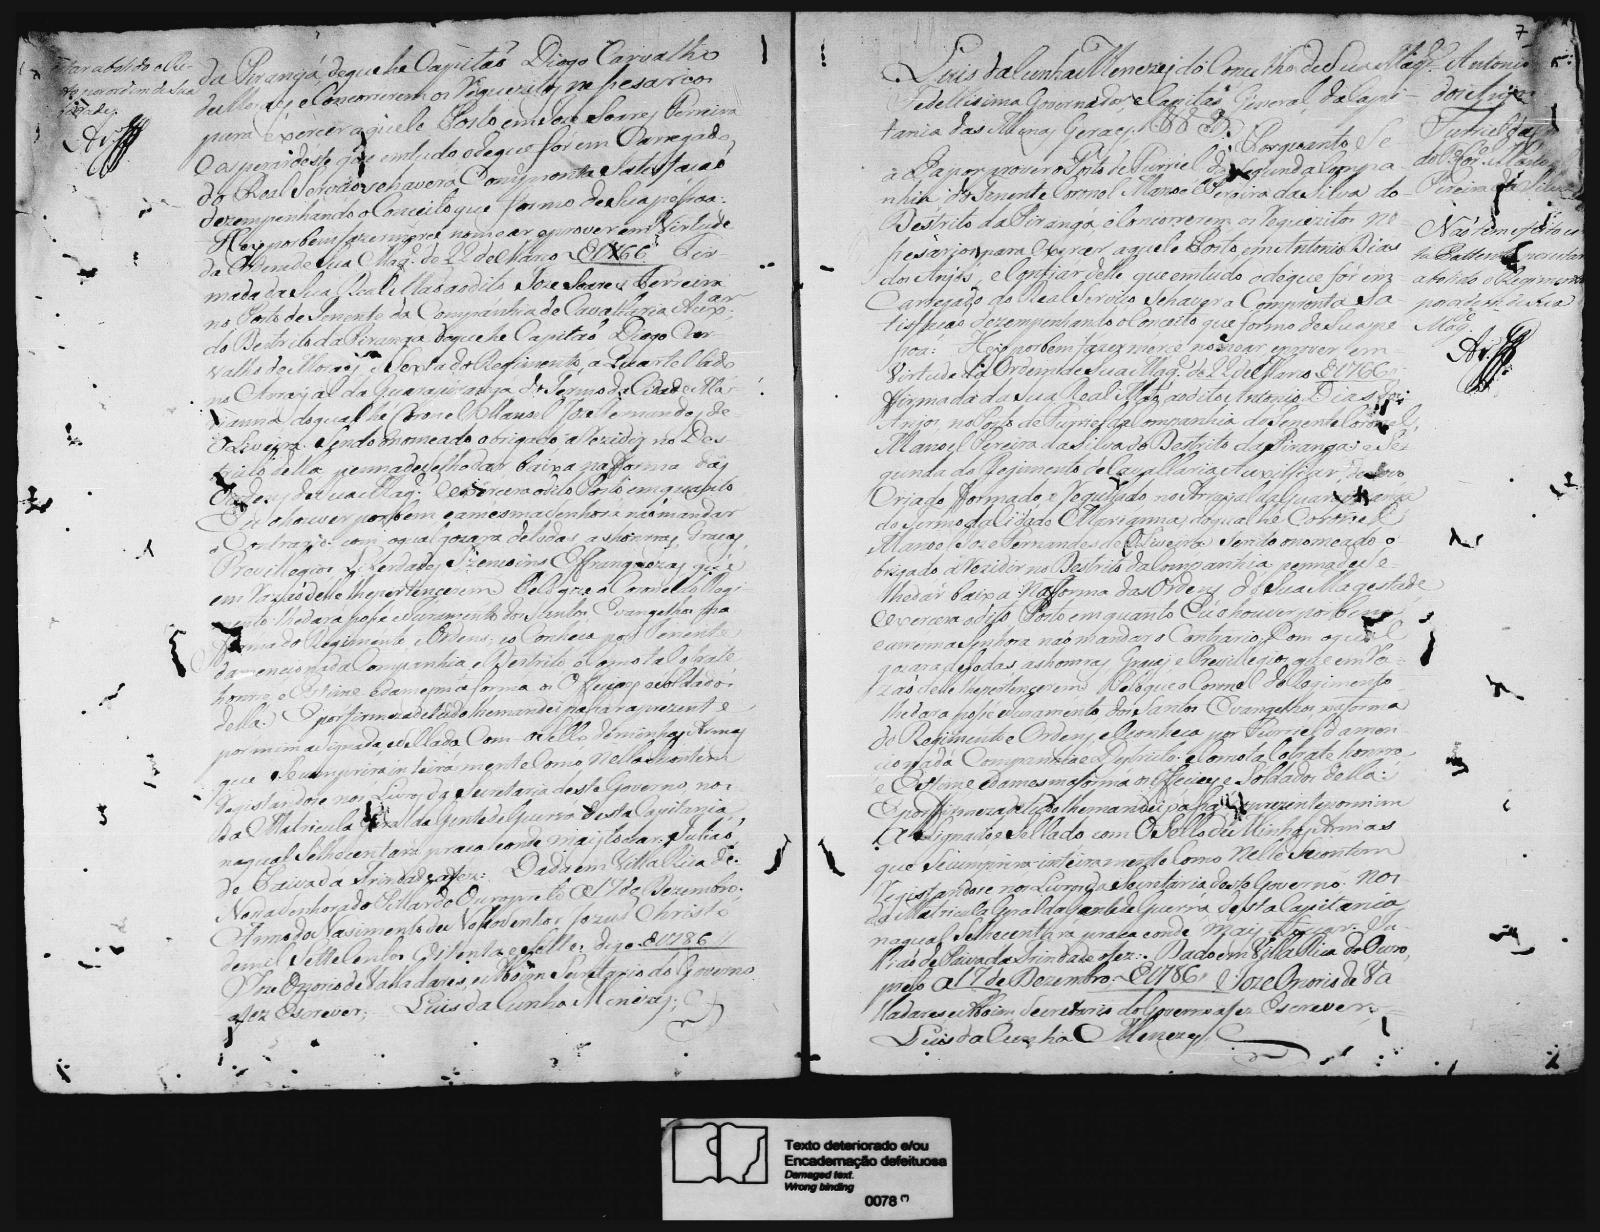 estar abolido o Re-
por ordem de Sua
da Piranga, de que he Capitaõ Diogo Carvalho
de Moraes e Concorrerem os Requezitos nessesarios
para exercer aquele Posto em Joze Soares Ferreira
e esperar deste que em tudo o de que for em Carregado
do Real Serviço se havera Com prompta Satisfaçaõ
dezempenhando o Conceito que formo de Sua pessoa:
Hey por bem fazer mercê nomear e prover em Virtude
da Ordem de Sua Mag.e de 22 de Março de 1766 Fir-
mada da Sua Real Maõ ao dito Joze Soares Ferreira
no Posto de Tenente da Companhia de Cavalaria Aux.ar
do Destrito da Piranga de que he Capitaõ Diogo Car
valho de Moraes e Sexta do Regimento, a Quartellado
no Arrayal da Guarapiranga do Termo da Cidade Ma-
rianna, do qual he Coronel Manoel Joze Fernandes de
Oliveira. Sendo o nomeado obrigado a Rezidir no Des
trito della penna de se lhe dar baixa na forma das
Ordens de Sua Mag.e e exercera o dito Posto em quanto
Eu o houver por bem e a mesma Senhora naõ mandar
o Contrario com o qual gozara de todas as honras, Graças,
Previllegios Liberdades Izençoins e Franquezas que
em razaõ delle lhe pertencerem Pelo que o Coronel do Regi-
mento lhe dará posse e Juramento dos Santos Evangelhos na
forma do Regimento e Ordens: e o Conheça por Tenente
da mencionada Companhia e Destrito e Como tal o trate
honre, e Estime e da mesma forma os Officiaes e Soldados
della. E por firmeza de tudo lhe mandei passar a prezente
por mim asignada, e sellada Com o Sello de minhas Armas
que se cumprirá inteiramente Como nella se contem
Registandose nos Livros da Secretaria deste Governo, nos
da Matricula Geral da Gente de Guerra desta Capitania
na qual Se lhe centará praça e onde mais tocar. Juliaõ
de Paiva da Trindade a fez: Dada em Villa Rica de
Nossa Senhora do Pillar do Ouro preto a 17 de Dezembro.
Anno do Nasimento de Nosso Senhor Jezus Christo
de mil Sette Centos Oittenta e Sette: digo de 1786
Joze Onorio de Valladares e Aboim Secretario do Governo
a fez Escrever; Luis da Cunha Menezes;
7
Luis da Cunha Menezes do Concelho de Sua Mag.e
Fedellissima Governador, e Capitaõ General da Capi-
tania das Minas Geraes. Porquanto Se
a Cha por prover o Posto de Furriel da Segunda Compa
nhia do Tenente Coronel Manoel Pereira da Silva do
Destrito da Piranga e Concorrerem os Requezitos ne
sesarios para Exercer aquele Posto em Antonio Dias
dos Anjos, e Confiar delle que em tudo o de que for em
Carregado do Real Servico Se havera Com pronta Sa-
tisfaçaõ dezempenhando o Conceito que formo de Sua pe
soa: Hey por bem fazer mercê nomear e prover em
Virtude da Ordem de Sua Mag.e de 22 de Marso de 1766
firmada da Sua Real Maõ ao dito Antonio Dias dos
Anjos no Posto de Furriel da Companhia do Tenente Coronel
Manoel Pereira da Silva do Destrito da Piranga e Se
gunda do Rejimento de Cavallaria Auxilliar de novo
Criado formado e Regullado no Arrayal da Guarapiranga
do Termo da Cidade Marianna, do qual hé Coronel
Manoel Joze Fernandes de Oliveira Sendo o nomeado o
brigado a Rezidir no Destrito da Companhia penna de Se
lhe dár baixa na forma das Ordens de Sua Magestade
e exercera o dito Posto em quanto Eu o houver por bem
e a mesma Senhora naõ mandar o Contrario; Com o qual
gozara de todas as honras Graças e Previllegios que em Ra-
zaõ delle lhe pertencerem Pelo que o Coronel do Regimento
lhe dara posse e Juramento dos Santos Evangelhos na forma
do Regimento e Ordens, e Conheca por Furriel da men
cionada Companhia e Destrito: e Como tal o trate honre
e Estime e da mesma forma os Officiaes e Soldados della:
E por firmeza de tudo lhe mandei passar a prezente por mim
Asignada e Sellado com O Sello de Minhas Armas
que Se cumprira inteiramente Como nelle Se contem
Registandose nos Livros da Secretaria deste Governo. Nos
da Matricula Geral da Gente de Guerra desta Capitania
na qual Se lhe centara praça e onde mais tocar. Ju-
liaõ de Paiva da Trindade o fez: Dado em Villa Rica do Ouro
preto a 17 de Dezembro de 1786 Joze Onorio de Va
lladares e Aboim Secretario do Governo a fez Escrever:
Luis da Cunha Menezes
Antonio
dos Anjos
Furriel da
do Cor.el Manoel
Pereira da Silva
Naõ tem efeito es-
ta Pattente por estar
abolido o Regimento
por ordem de Sua
Mag.e
Texto deteriorado e/ou
Encadernação defeituosa
Damaged text.
Wrong binding
0078 (*)